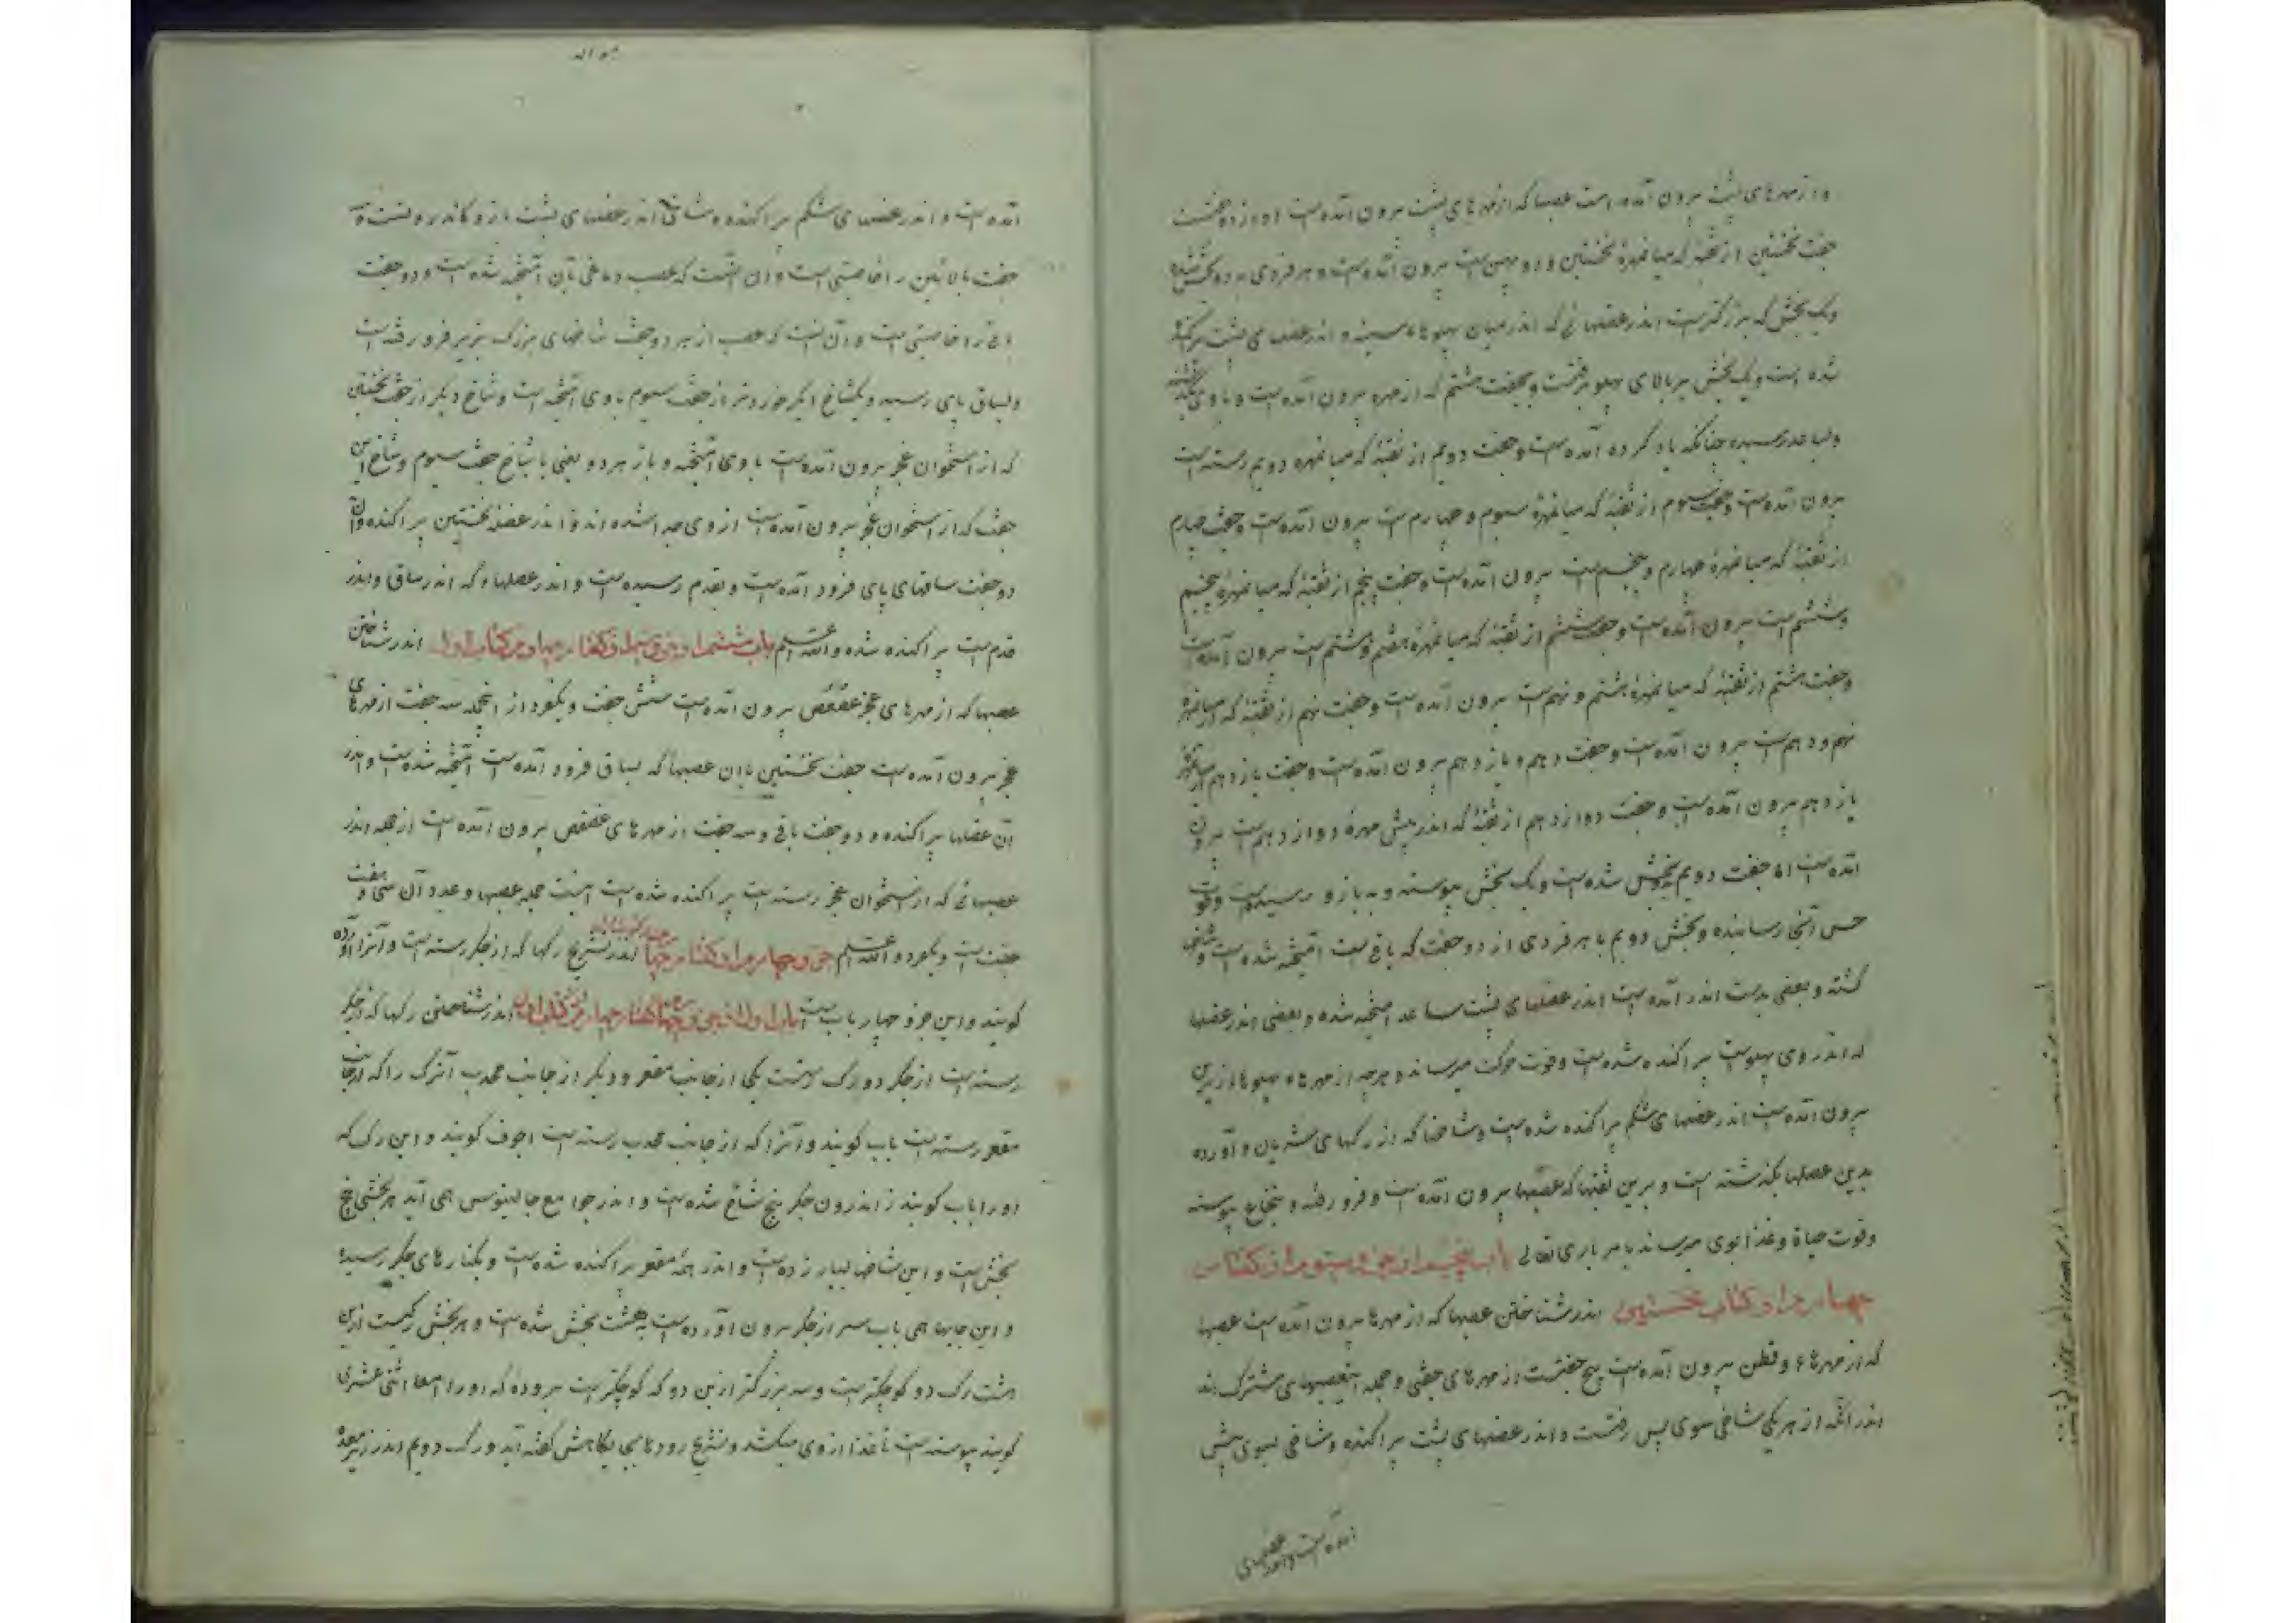 و از مهرهای پشت برون آمده است عصبها که از مهرهای پشت برون آمدست دوازده جفتست
جفت نخستین از ثقبهٔ که میانمهرهٔ نخستین و دویمین است برون آمدست و هر فردی به دو بخش شده
و یک بخش که بزرگترست اندر عضلهائی که اندر میان پهلوهاء سینه و اندر عضلهای پشت پراکنده
شده است و یک بخش بر بالای پهلو برفتست و بجفت هشتم که از مهره برون آمدست و با وی
و بساعد رسیده چنانکه یاد کرده آمدست و جفت دویم از ثقبهٔ که میانمهره دویم رسته است
برون آمدست و جفت سیوم از ثقبهٔ که میانمهرهٔ سیوم و چهارم است برون آمدست و جفت چهارم
از ثقبهٔ که میانمهرهٔ چهارم و پنجم است برون آمدست و جفت پنجم از ثقبهٔ که میانمهرهٔ پنجم
و ششم است برون آمدست و جفت ششم از ثقبهٔ که میانمهرهٔ هفتم و هشتم است برون آمدست
و جفت هشتم از ثقبهٔ که میانمهرهٔ هشتم و نهم است برون آمدست و جفت نهم از ثقبهٔ که از میانمهرهٔ
نهم و دهم است برون آمدست و جفت دهم و یازدهم برون آمدست و جفت یازدهم از میانمهرهٔ
یازدهم برون آمدست و جفت دوازدهم از ثقبهٔ که اندر پیش مهرهٔ دوازدهم است برون
آمدست اما جفت دویم بدو بخش شدست و یک بخش پیوسته و به بازو رسیدست و قوت
حس آنجا رساننده و بخش دویم با هر فردی از دو جفت که باقی است آمیخته شده است و شاخ
گشته و بعضی بدست اندر آمدست اندر عضلهای پشت ساعد آمیخته شده و بعضی اندر عضلها
که اندر روی پهلوست پراکنده شدست و قوت حرکت میرساند و هرچه از مهرهاء پهلوها از زیرین
برون آمدست اندر عضلهای شکم پراکنده شدست و شاخها که از رگهای شریان و آورده
بدین عضلها بگذشته است و برین ثقبها که عصبها برون آمدست و فرو رفته و بنخاع پیوسته
و قوت حیاة و غذا بوی میرساند بامر باری تعالی باب پنجم از جزو سیوم از گفتار
چهارم از کتاب نخستین اندر شناختن عصبها که از مهرها برون آمدست عصبها
که از مهرهاء قطن برون آمدست پنج جفتست از مهرهای جفتی و جمله اینعصبهای مشترک اند
اندر آنکه از هر یکی شاخی سوی پس رفتست و اندر عضلهای پشت پراکنده و شاخی بسوی پیش
آمده است و اندر عضلهای
آمده ست و اندر عضلهای شکم پراکنده و شاخی اندر عضلهای پشت
جفت بالائین را خاصیتی است و آن آنست که عصب دماغی بآن آمیخته شدست و دو جفت
باقی را خاصیتی است و آن آنست که عصب از هر دو جفت شاخهای بزرگ بزیر فرو رفته است
و بساق پای رسیده و یکشاخ دیگر خوردتر از جفت سیوم با وی آمیخته است و شاخ دیگر از جفت نخستین
که از استخوان عجز برون آمدست با وی آمیخته و باز هر دو یعنی با شاخ جفت سیوم و شاخ این
جفت که از استخوان عجز برون آمدست از وی جدا شده اند و اندر عضلهٔ نخستین پراکنده و آن
دو جفت ساقهای پای فرود آمدست و بقدم رسیدست و اندر عضلها که اندر ساق و اندر
قدم است پراکنده شده و الله اعلم باب ششم از جزو سیوم از گفتار چهارم از کتاب اول اندر شناختن
عصبها که از مهرهای عجز عصعص برون آمدست شش جفت و یکفرد از آنجمله سه جفت از مهرهای
عجز برون آمدست جفت نخستین با آن عصبها که بساق فرود آمدست آمیخته شدست و اندر
آن عضلها پراکنده و دو جفت باقی و سه جفت از مهرهای عصعص برون آمدست از جمله اندر
عصبهائی که از استخوان عجز رسته است پراکنده شدست اینست جمله عصبها و عدد آن سی و هفت
جفت است و یکفرد و الله اعلم جزو چهارم از گفتار چهارم اندر تشریح رگها که از جگر رسته است و آنرا آورده
گویند و این جزو چهار باب است باب اول از جزو چهارم از گفتار چهارم از کتاب اول اندر شناختن رگها که از جگر
رسته است از جگر دو رگ رستست یکی از جانب مقعر و دیگر از جانب محدب آنرگ را که از جانب
مقعر رسته است باب گویند و آنرا که از جانب محدب رسته است اجوف گویند و این رگ که
او را باب گویند ز اندرون جگر پنج شاخ شدست و اندر جوامع جالینوس همی آید هر بخشی پنج
بخش است و این شاخها بسیار زدست و اندر همه مقعر پراکنده شدست و بکنارهای جگر رسیده
و این جایها همی باب سر از جگر برون آوردست بهشت بخش شدست و هر بخش رگیست ازین
هشت رگ دو کوچکترست و سه بزرگتر ازین دو که کوچکترست بروده که او را امعا اثنی عشری
گویند پیوسته است تا غذا از وی میکشد و تشریح رودها بجایگاهش گفته آید و رگ دویم اندر زیر معده